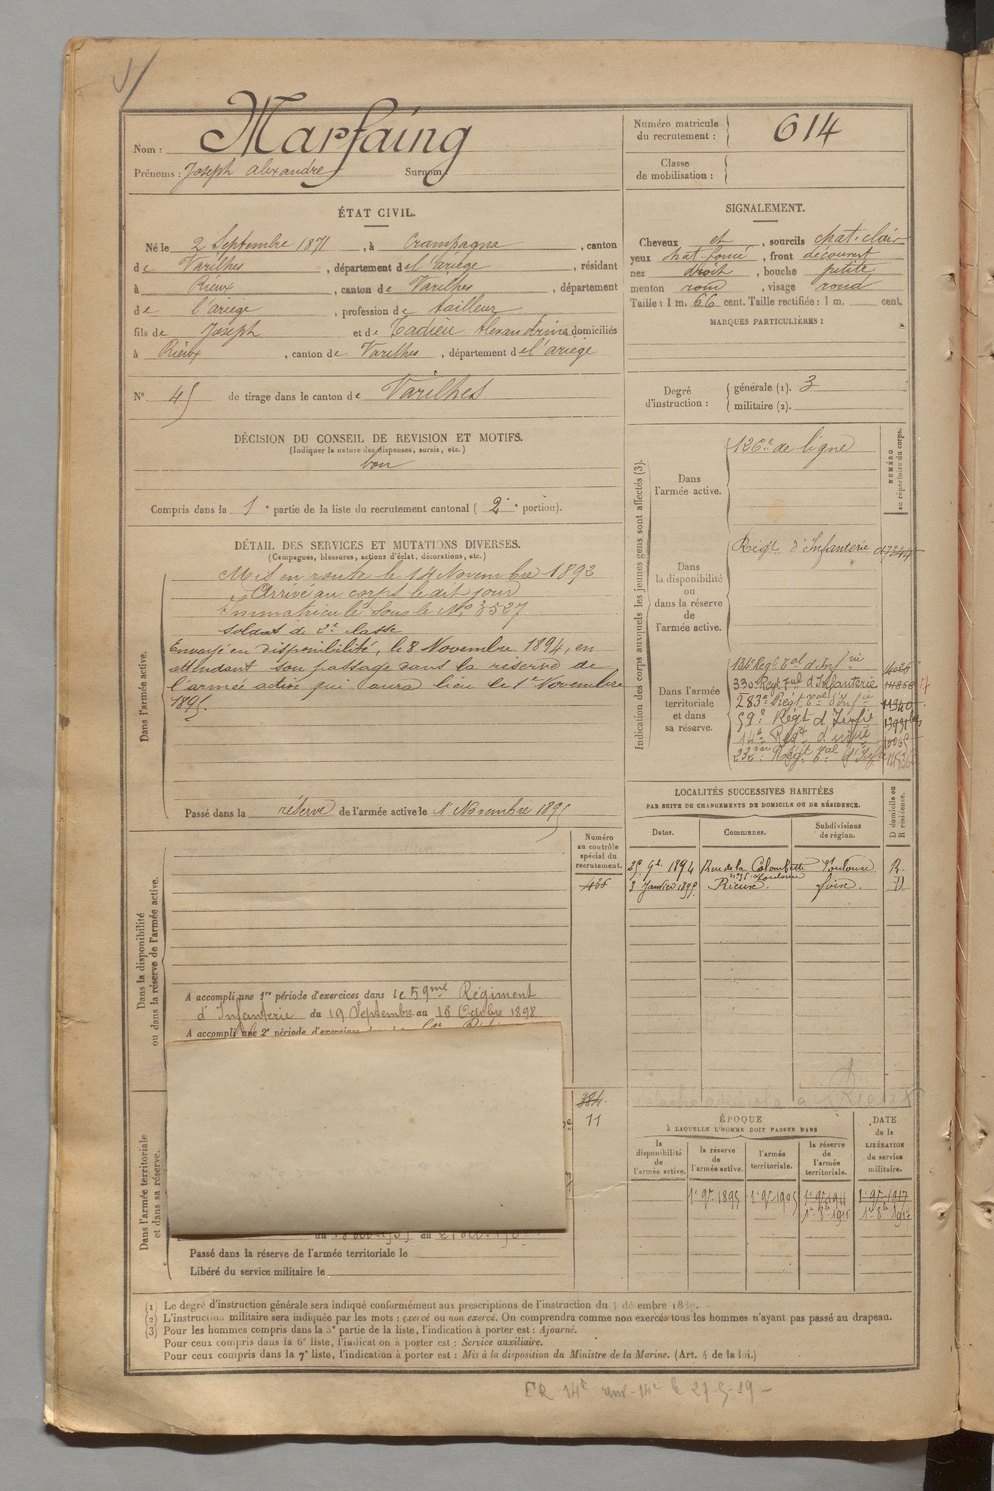 Nom : Marfaing
Prénoms : Joseph Alexandre Surnom
Numéro matricule du recrutement : 614
Classe de mobilisation :
ÉTAT CIVIL.
Né le 2 Septembre 1871, à Crampagna, canton
de Varilhes, département de l'ariège, résidant
à Rieux, canton de Varilhes, département
de l'ariège, profession de tailleur
fils de Joseph et de Tadieu Alexandrine domiciliés
à Rieux, canton de Varilhes, département de l'ariège
N° 45 de tirage dans le canton de Varilhes
SIGNALEMENT.
Cheveux et, sourcils chat. clair
yeux chat. foncé, front découvert
nez droit, bouche petite
menton rond, visage rond
Taille : 1 m. 66 cent. Taille rectifiée : 1 m. cent.
MARQUES PARTICULIÈRES :
Degré d'instruction : générale (1). 3
militaire (2).
DÉCISION DU CONSEIL DE REVISION ET MOTIFS.
(Indiquer la nature des dispenses, sursis, etc.)
bon
Compris dans la 1e partie de la liste du recrutement cantonal (2e portion).
DÉTAIL DES SERVICES ET MUTATIONS DIVERSES.
(Campagnes, blessures, actions d'éclat, décorations, etc.)
Dans l'armée active.
Mis en route le 14 Novembre 1892
Arrivé au corps le dit jour
Immatriculé sous le N° 3527
soldat de 2e classe
Envoyé en disponibilité, le 8 Novembre 1894, en
attendant son passage dans la réserve de
l'armée active qui aura lieu le 1er Novembre
1895.
Passé dans la réserve de l'armée active le 1 Novembre 1895
Indication des corps auxquels les jeunes gens sont affectés (3).
NUMÉRO au répertoire du corps.
Dans l'armée active.
126e de ligne
Dans la disponibilité ou dans la réserve de l'armée active.
Régt. d'Infanterie
Dans l'armée territoriale et dans sa réserve.
134e Régt Tal d'Infrie
330e Régt Tal d'Infanterie
283e Régt Tal d'Infie
59e Régt d'Infie
14e Régt d'infie
232e Régt Tal d'Infie
LOCALITÉS SUCCESSIVES HABITÉES
PAR SUITE DE CHANGEMENTS DE DOMICILE OU DE RÉSIDENCE.
Dates. Communes. Subdivisions de région. D domicile ou R résidence.
9e 1894 Rue de la Colombette Toulouse R.
3 Janvier 1895 Rieux. foix. D
Dans la disponibilité ou dans la réserve de l'armée active.
Numéro au contrôle spécial du recrutement.
A accompli une 1re période d'exercices dans le 59me Régiment
d'Infanterie du 19 Septembre au 16 Octobre 1898
A accompli une 2e période d'exercices
Dans l'armée territoriale et dans sa réserve.
384
11
Passé dans la réserve de l'armée territoriale le
Libéré du service militaire le
ÉPOQUE
À LAQUELLE L'HOMME DOIT PASSER DANS
la disponibilité de l'armée active. la réserve de l'armée active. l'armée territoriale. la réserve de l'armée territoriale.
DATE de la LIBÉRATION du service militaire.
1er 9e 1895 1er 9e 1905 1er 9e 1911 1er 9e 1917
(1) Le degré d'instruction générale sera indiqué conformément aux prescriptions de l'instruction du
(2) L'instruction militaire sera indiquée par les mots : exercé ou non exercé. On comprendra comme non exercés tous les hommes n'ayant pas passé au drapeau.
(3) Pour les hommes compris dans la 5e partie de la liste, l'indication à porter est : Ajourné.
Pour ceux compris dans la 6e liste, l'indication à porter est : Service auxiliaire.
Pour ceux compris dans la 7e liste, l'indication à porter est : Mis à la disposition du Ministre de la Marine. (Art. 4 de la loi.)